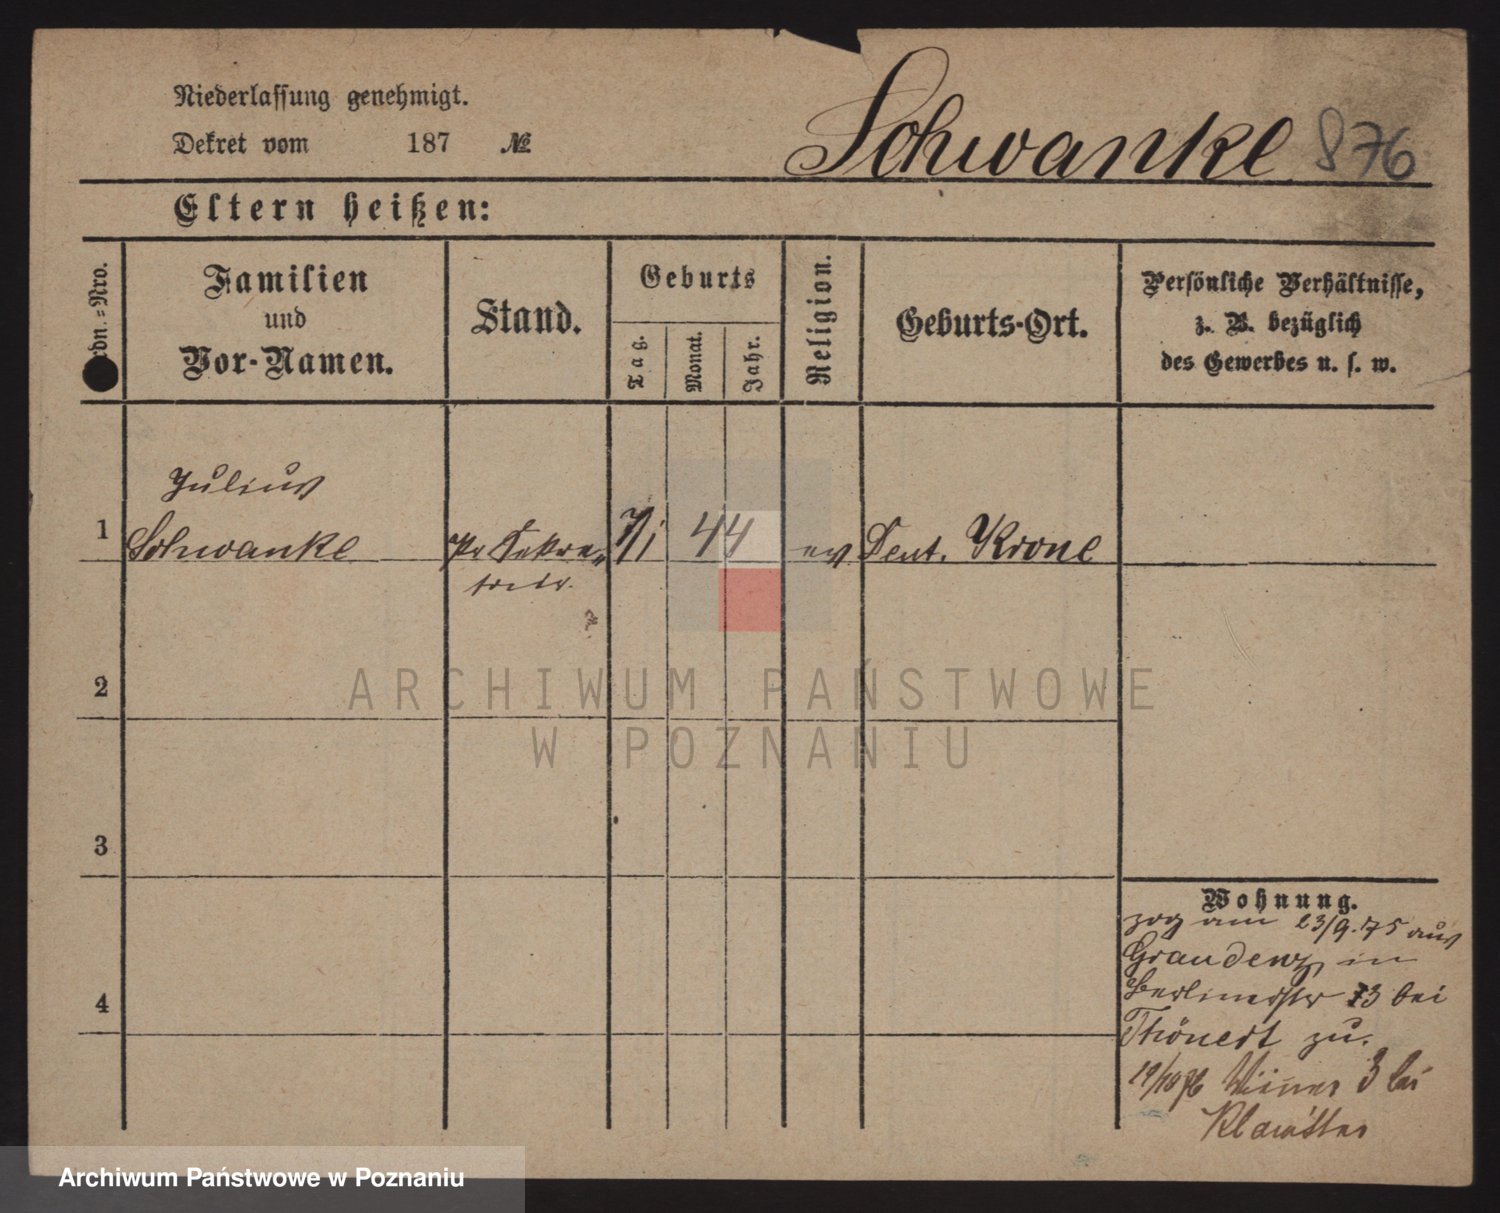 Niederlassung genehmigt.
Dekret vom 187 №
Schwanke 876
Eltern heißen:
Ordn.=Nro.
Familien
und
Vor-Namen.
Stand.
Geburts
Tag.
Monat.
Jahr.
Religion.
Geburts-Ort.
Persönliche Verhältnisse,
z. B. bezüglich
des Gewerbes u. s. w.
Julius
1 Schwanke Sekre- 44 ev Deut. Krone
tair
2
3
4
Wohnung.
zog am 23/9.75 aus
Graudenz in
Berlinerstr 13 bei
Thönert zu.
19/10 76 3 bei
Klawitter
ARCHIWUM PAŃSTWOWE
W POZNANIU
Archiwum Państwowe w Poznaniu